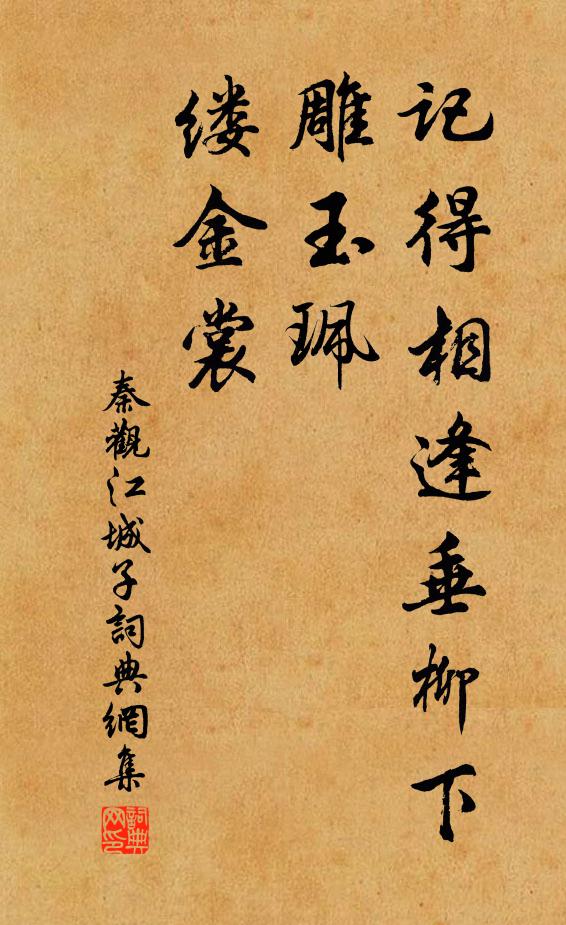 记得相逢垂柳下
雕玉珮
缕金裳
秦觀江城子詞典網集
詞典网印